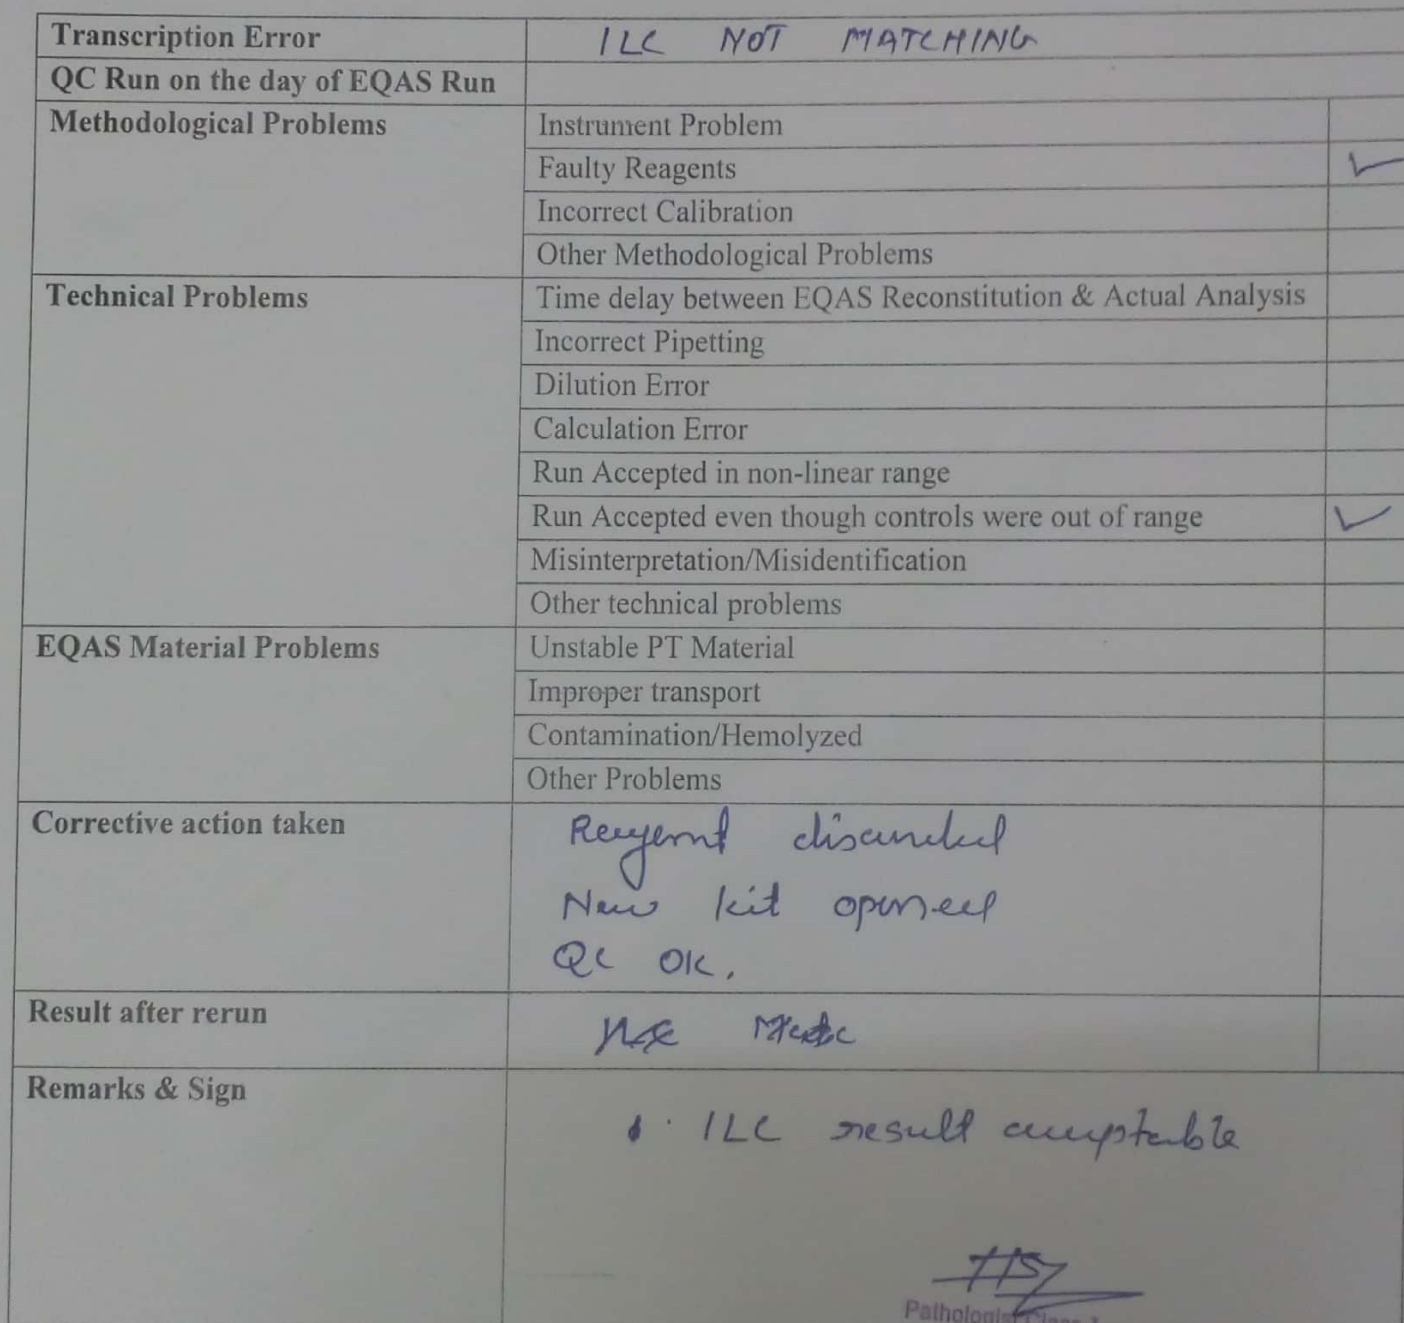 Transcription Error ILC NOT MATCHING
QC Run on the day of EQAS Run
Methodological Problems Instrument Problem
Faulty Reagents ✓
Incorrect Calibration
Other Methodological Problems
Technical Problems Time delay between EQAS Reconstitution & Actual Analysis
Incorrect Pipetting
Dilution Error
Calculation Error
Run Accepted in non-linear range
Run Accepted even though controls were out of range ✓
Misinterpretation/Misidentification
Other technical problems
EQAS Material Problems Unstable PT Material
Improper transport
Contamination/Hemolyzed
Other Problems
Corrective action taken Reagent discarded
New kit opened
QC OK.
Result after rerun
Remarks & Sign ILC result acceptable
Pathologist